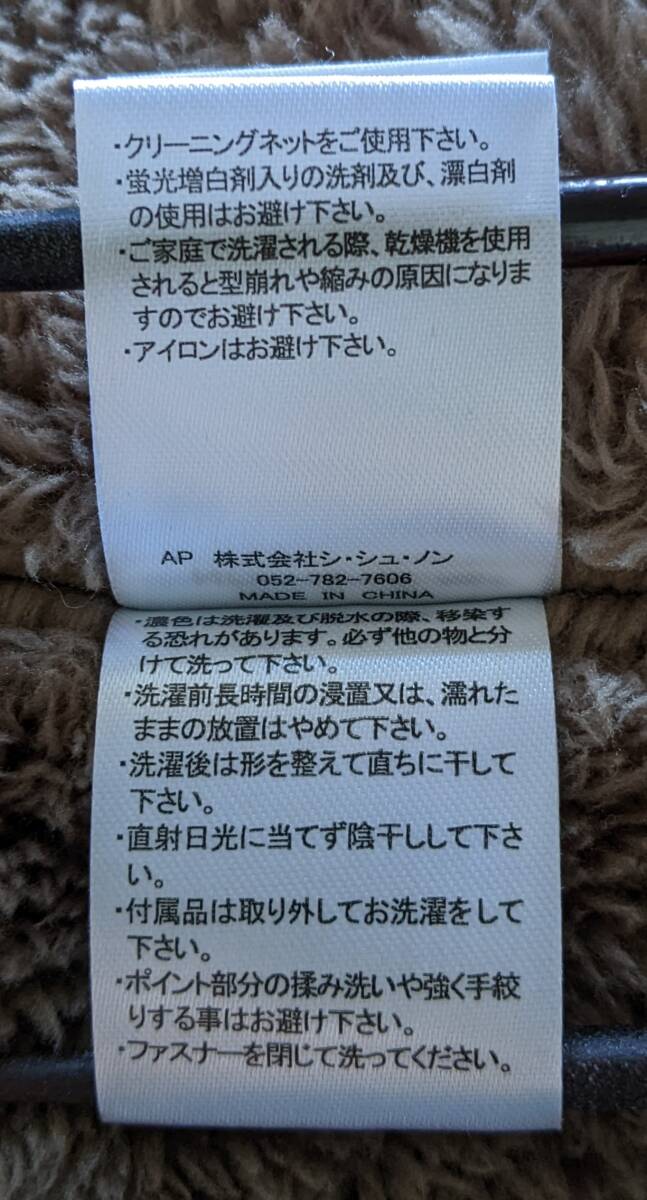 ・クリーニングネットをご使用下さい。
・蛍光増白剤入りの洗剤及び、漂白剤
の使用はお避け下さい。
・ご家庭で洗濯される際、乾燥機を使用
されると型崩れや縮みの原因になりま
すのでお避け下さい。
・アイロンはお避け下さい。
AP 株式会社シ・シュ・ノン
052-782-7606
MADE IN CHINA
・濃色は洗濯及び脱水の際、移染す
る恐れがあります。必ず他の物と分
けて洗って下さい。
・洗濯前長時間の浸置又は、濡れた
ままの放置はやめて下さい。
・洗濯後は形を整えて直ちに干して
下さい。
・直射日光に当てず陰干しして下さ
い。
・付属品は取り外してお洗濯をして
下さい。
・ポイント部分の揉み洗いや強く手絞
りする事はお避け下さい。
・ファスナーを閉じて洗ってください。